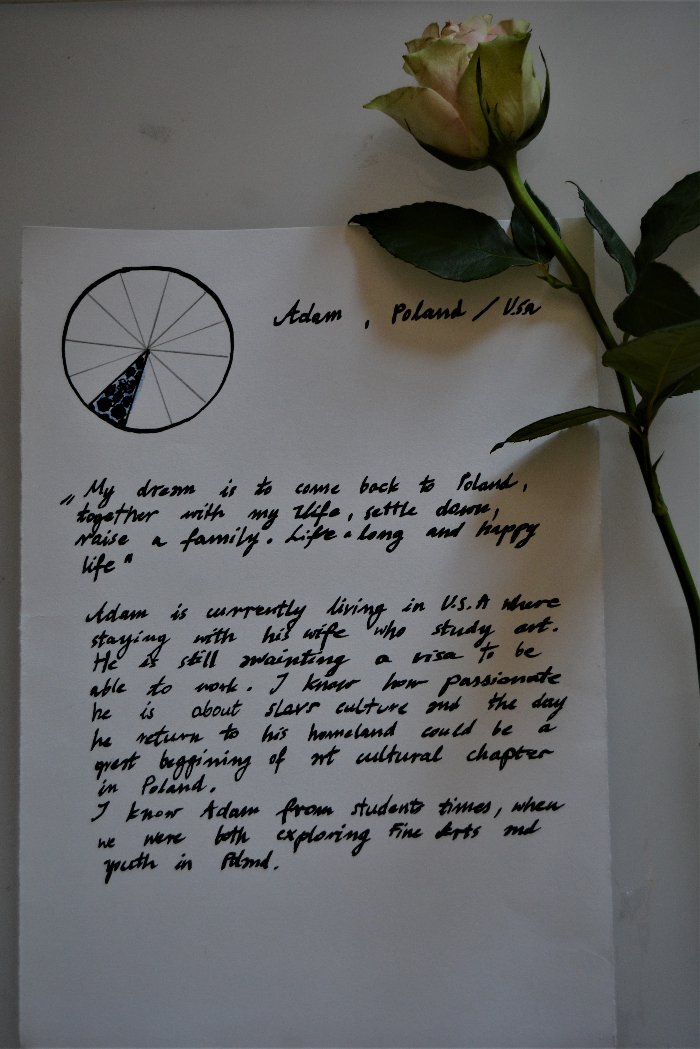 Adam , Poland / Usa
„My dream is to come back to Poland,
together with my wife, settle down,
raise a family. Life-long and happy
life"
Adam is currently living in U.S.A where
staying with his wife who study art.
He is still awainting a visa to be
able to work. I know how passionate
he is about slavs culture and the day
he return to his homeland could be a
great beggining of art cultural chapter
in Poland.
I know Adam from students times, when
we were both exploring Fine Arts and
youth in Poland.